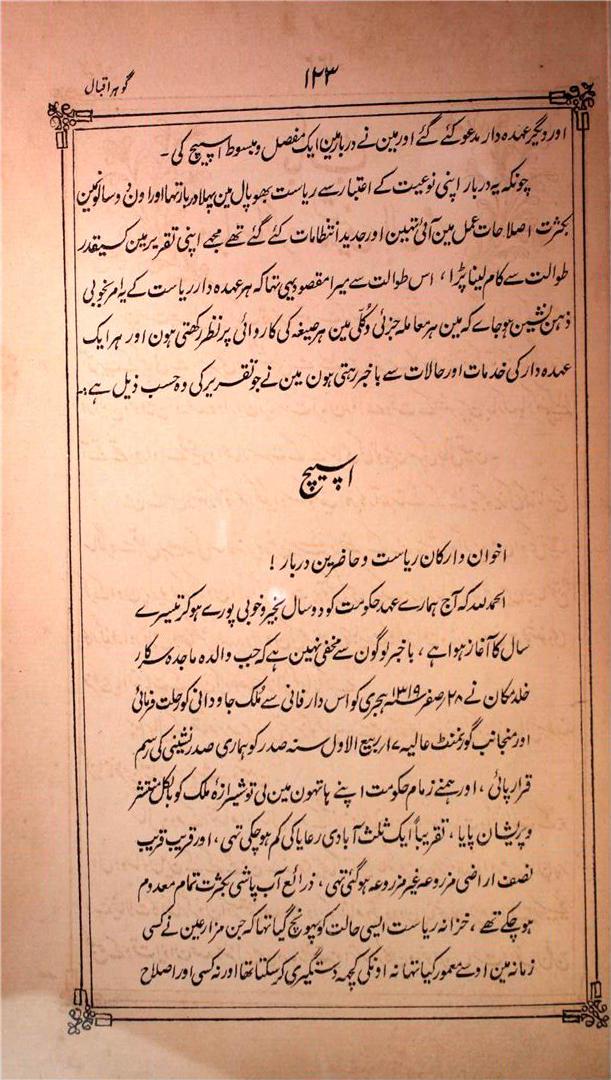 گوہر اقبال
۱۲۳
اور دیگر عہدہ دار مدعو کئے گئے اور مین نے دربار مین ایک مفصل و مبسوط اسپیچ کی ۔
چونکہ یہ دربار اپنی نوعیت کے اعتبار سے ریاست بھوپال مین پہلا دربار تہا اور اون دو سالونمین
بکثرت اصلاحات عمل مین آئی تہین اور جدید انتظامات کئے گئے تھے مجھے اپنی تقریر مین کسیقدر
طوالت سے کام لینا پڑا ، اس طوالت سے میرا مقصود یہی تہا کہ ہر عہدہ دار ریاست کے یہ امر بخوبی
ذہن نشین ہو جاے کہ مین ہر معاملہ جزئی و کلّی مین ہر صیغہ کی کاروائی پر نظر رکھتی ہون اور ہر ایک
عہدہ دار کی خدمات اور حالات سے باخبر رہتی ہون مین نے جو تقریر کی وہ حسب ذیل ہے :۔
اسپیچ
اخوان و ارکان ریاست و حاضرین دربار !
الحمد للہ کہ آج ہمارے عہد حکومت کو دو سال بخیر و خوبی پورے ہو کر تیسرے
سال کا آغاز ہوا ہے ، باخبر لوگون سے مخفی نہین ہے کہ جب والدہ ماجدہ سرکار
خلد مکان نے ۲۸ صفر ۱۳۱۹ ہجری کو اس دار فانی سے مُلک جاودانی کو رحلت فرمائی
اور منجانب گورنمنٹ عالیہ ۱۷ ربیع الاول سنہ صدر کو ہماری صدر نشینی کی رسم
قرار پائی ، اور ہمنے زمام حکومت اپنے ہاتھون مین لی تو شیرازۂ ملک کو بالکل منتشر
و پریشان پایا ، تقریباً ایک ثلث آبادی رعایا کی کم ہو چکی تہی ، اور قریب قریب
نصف اراضی مزروعہ غیر مزروعہ ہو گئی تہی ، ذرائع آب پاشی بکثرت تمام معدوم
ہو چکے تھے ، خزانہ ریاست ایسی حالت کو پہونچ گیا تہا کہ جن مزارعین نے کسی
زمانہ مین اوسے معمور کیا تہا نہ اونکی کچھ دستگیری کر سکتا تھا اور نہ کسی اور اصلاح